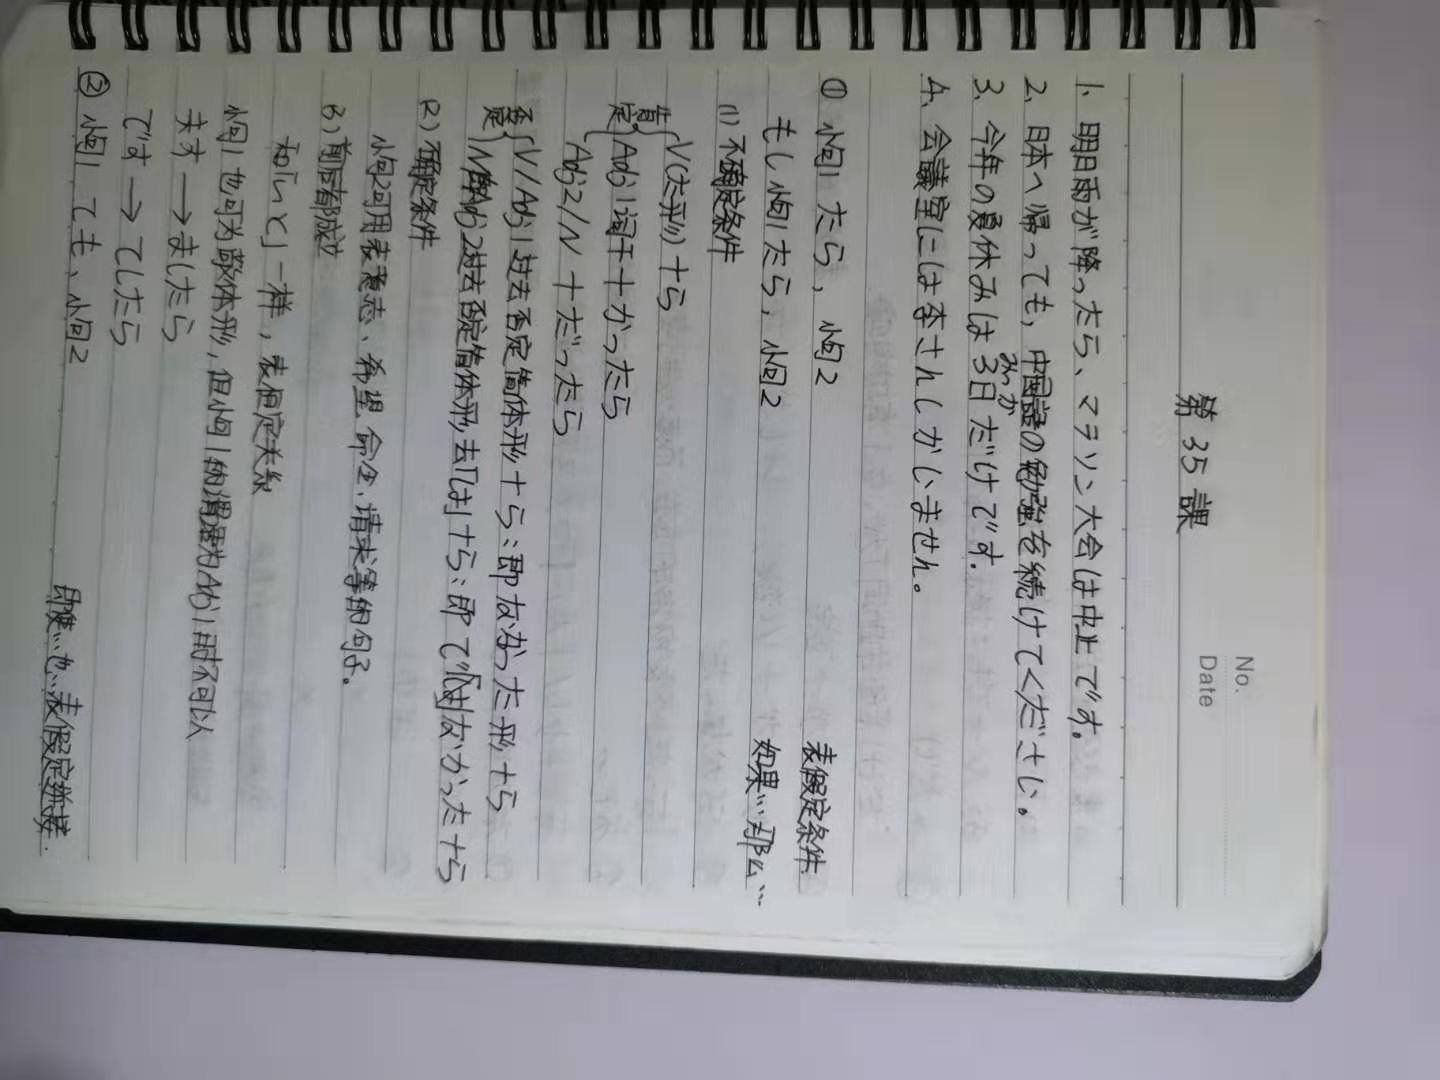 No.
Date
第 35 課
1. 明日雨が降ったら、マラソン大会は中止です。
2. 日本へ帰っても、中国語の勉強を続けてください。
みっか
3. 今年の夏休みは 3日だけです.
4. 会議室には李さんしかいません。
① 小句1 たら, 小句2 表假定条件
もし小句1たら, 小句2 如果…那么…
(1) 不确定条件
肯定 V(た形)+ら
Adj1词干+かったら
Adj2/N+だったら
否定 V/Adj1过去否定简体形+ら:即なかった形+ら
N/Adj2过去否定简体形,去「は」+ら:即で(は)なかった+ら
(2) 确定条件
小句2可用表意志、希望、命令、请求等的句子.
(3) 前后都成立
和「いと」一样,表恒定关系
小句1也可为敬体形,但小句1的谓语为Adj1时不可以
ます→ましたら
です→でしたら
② 小句1 ても、小句2 即使…也… 表假定转接.